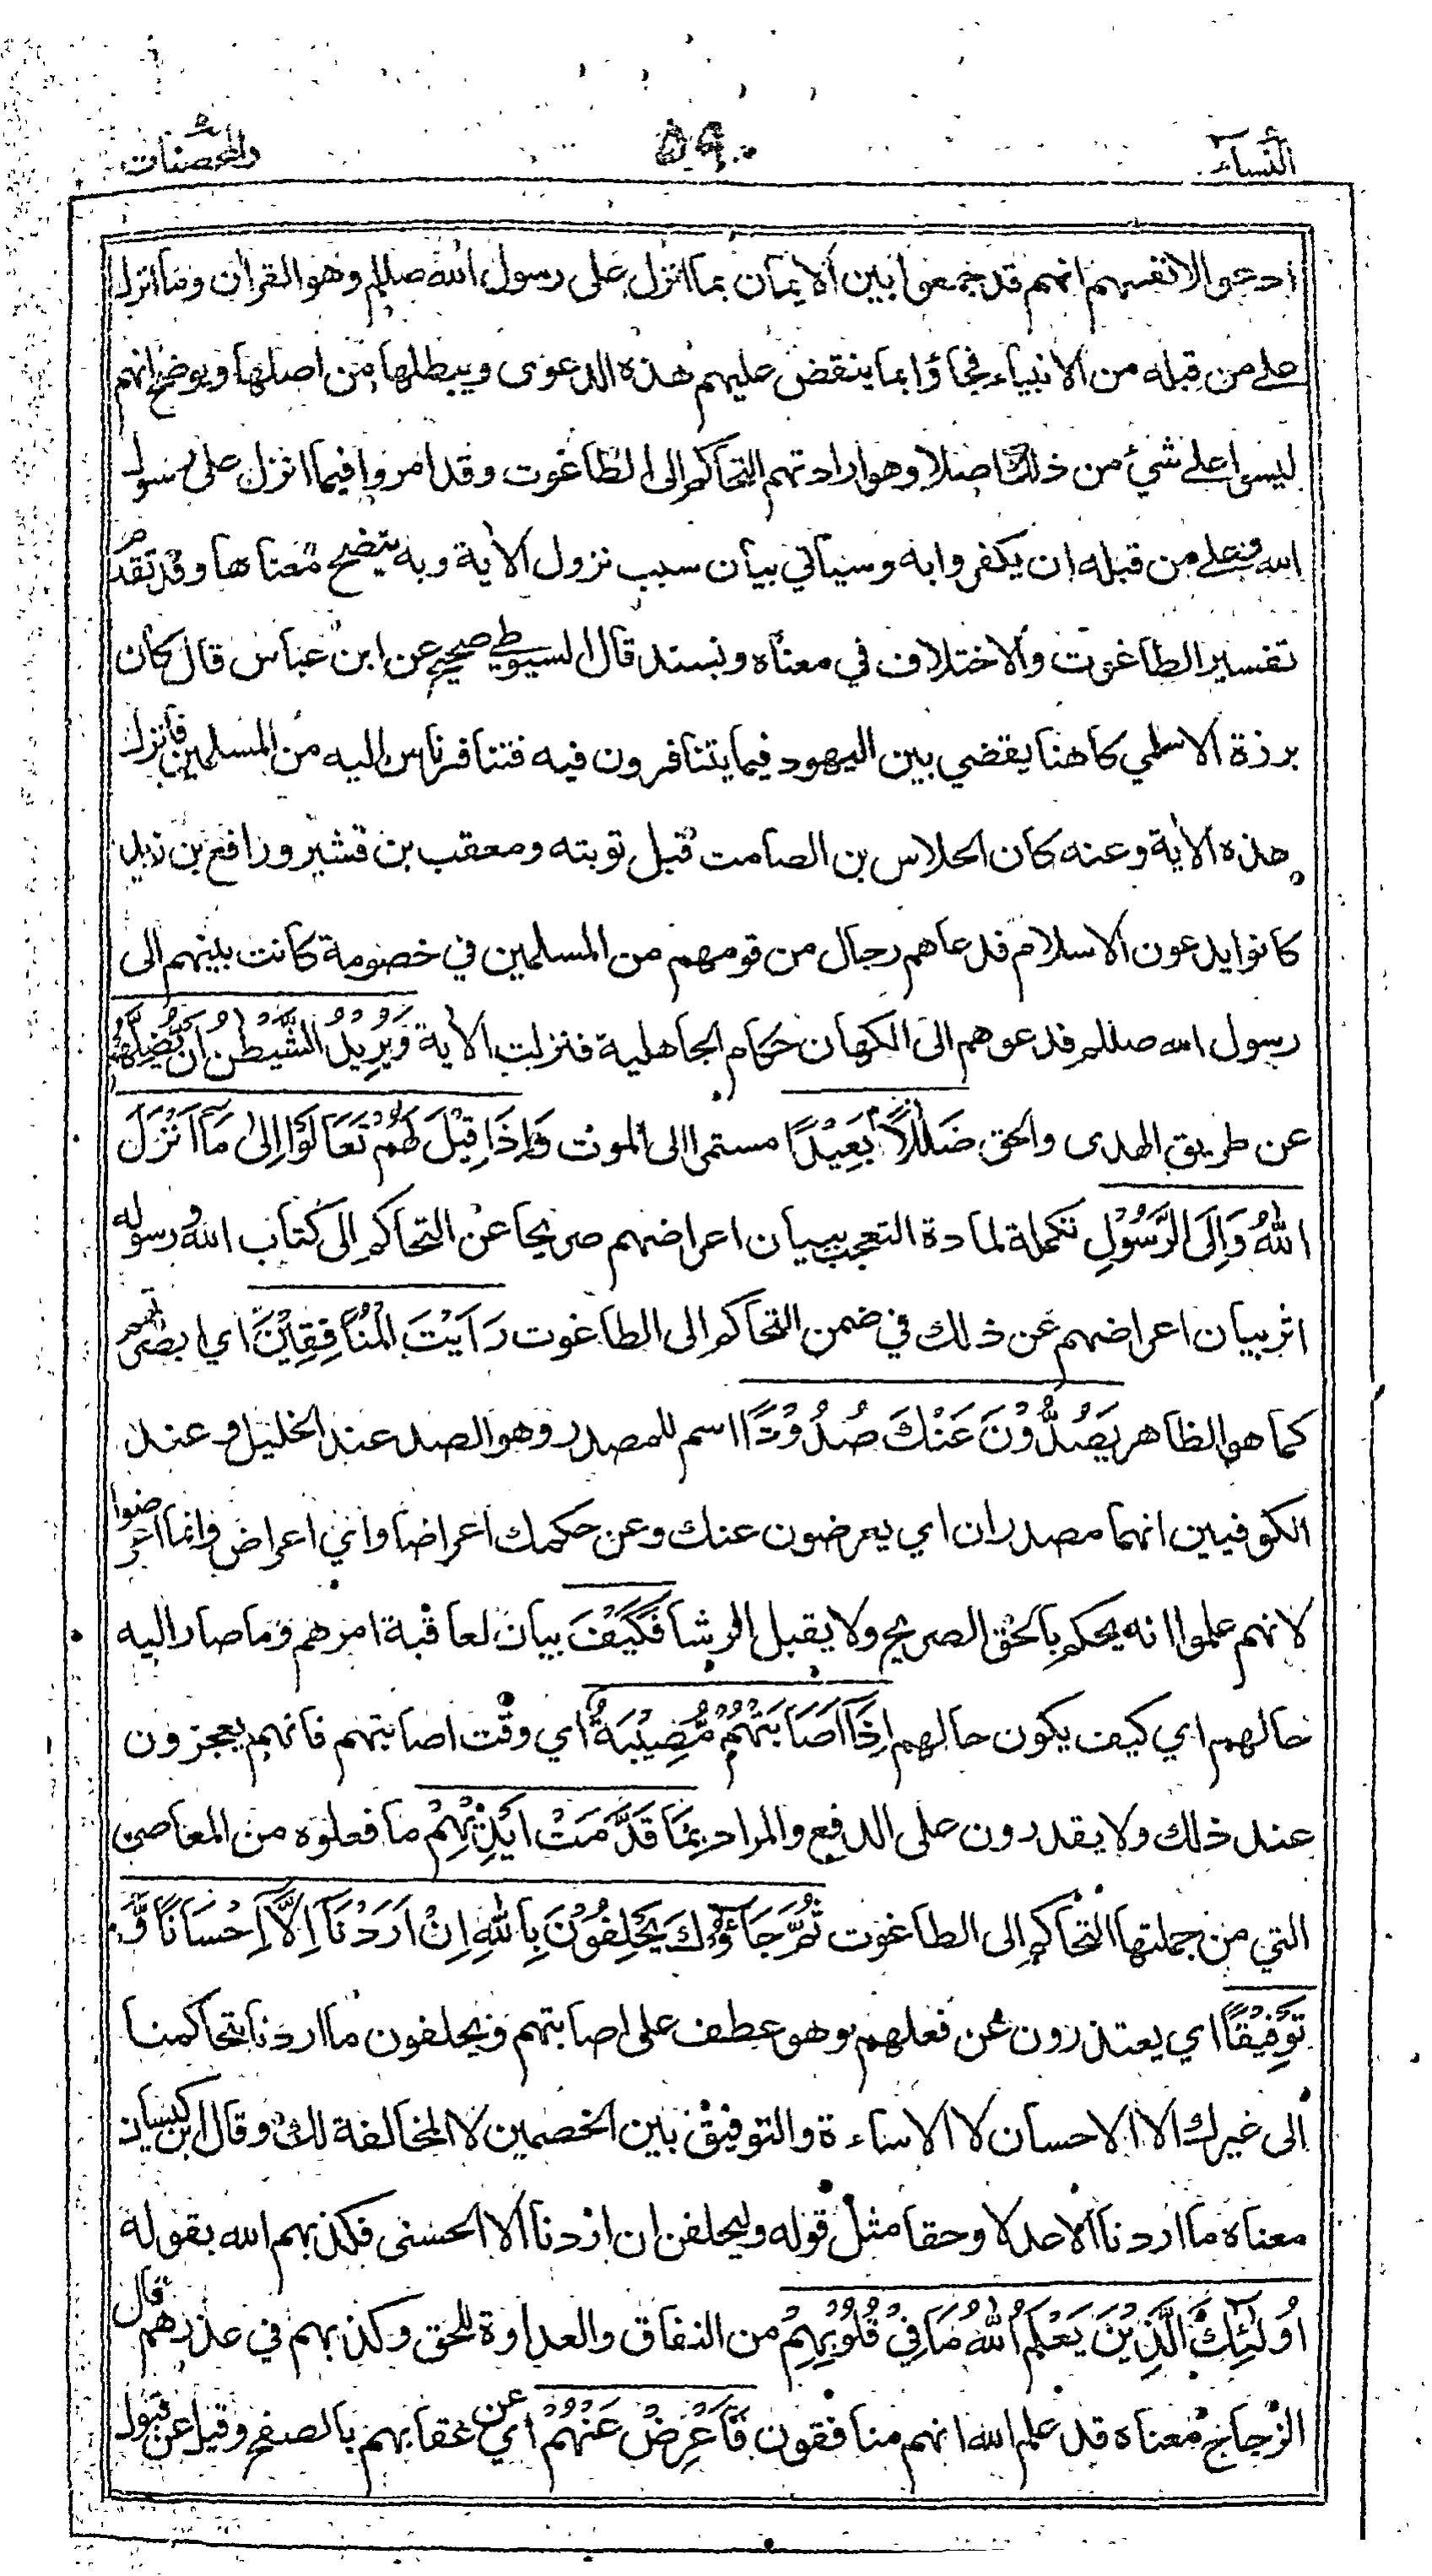 النساء ٥٩٠ والمحصنات
ادعوا لانفسهم انهم قد جمعوا بين الايمان بما انزل على رسول الله صللم وهو القرآن وما انزل
على من قبله من الانبياء فجاؤا بما ينقض عليهم هذه الدعوى ويبطلها من اصلها ويوضح انهم
ليسوا على شيء من ذلك اصلا وهو ارادتهم التحاكم الى الطاغوت وقد امروا فيما انزل على رسول
الله وعلى من قبله ان يكفروا به وسياتي بيان سبب نزول الاية وبه يتضح معناها وقد تقدم
تفسير الطاغوت والاختلاف في معناه وبسند قال السيوطي صحيح عن ابن عباس قال كان
برزة الاسلمي كاهنا يقضي بين اليهود فيما يتنافرون فيه فتنافر ناس اليه من المسلمين فانزل
هذه الاية وعنه كان الجلاس بن الصامت قبل توبته ومعقب بن قشير ورافع بن زيد
كانوا يدعون الاسلام فدعاهم رجال من قومهم من المسلمين في خصومة كانت بينهم الى
رسول الله صللم فدعوهم الى الكهان حكام الجاهلية فنزلت الاية وَيُرِيْدُ الشَّيْطٰنُ اَنْ يُّضِلَّهُمْ
عن طريق الهدى والحق ضَلٰلًا بَعِيْدًا مستمرا الى الموت وَاِذَا قِيْلَ لَهُمْ تَعَالَوْا اِلٰى مَا اَنْزَلَ
اللّٰهُ وَاِلَى الرَّسُوْلِ تكملة لمادة التعجب ببيان اعراضهم صريحا عن التحاكم الى كتاب الله ورسوله
اثر بيان اعراضهم عن ذلك في ضمن التحاكم الى الطاغوت رَاَيْتَ الْمُنَافِقِيْنَ اي ابصرتهم
كما هو الظاهر يَصُدُّوْنَ عَنْكَ صُدُوْدًا اسم للمصدر وهو الصد عند الخليل وعند
الكوفيين انهما مصدران اي يعرضون عنك وعن حكمك اعراضا واي اعراض وانما اعرضوا
لانهم علموا انه يحكم بالحق الصريح ولا يقبل الرشا فَكَيْفَ بيان لعاقبة امرهم وما صار اليه
حالهم اي كيف يكون حالهم اِذَا اَصَابَتْهُمْ مُّصِيْبَةٌ اي وقت اصابتهم فانهم يعجزون
عند ذلك ولا يقدرون على الدفع والمراد بِمَا قَدَّمَتْ اَيْدِيْهِمْ ما فعلوه من المعاصي
التي من جملتها التحاكم الى الطاغوت ثُمَّ جَآؤُكَ يَحْلِفُوْنَ بِاللّٰهِ اِنْ اَرَدْنَا اِلَّا اِحْسَانًا وَّ
تَوْفِيْقًا اي يعتذرون عن فعلهم وهو عطف على اصابتهم ويحلفون ما اردنا بتحاكمنا
الى غيرك الا الاحسان لا الاساءة والتوفيق بين الخصمين لا المخالفة لك وقال ابن كيسان
معناه ما اردنا الا عدلا وحقا مثل قوله وليحلفن ان اردنا الا الحسنى فكذبهم الله بقوله
اُولٰٓئِكَ الَّذِيْنَ يَعْلَمُ اللّٰهُ مَا فِيْ قُلُوْبِهِمْ من النفاق والعداوة للحق وكذبهم في عذرهم قال
الزجاج معناه قد علم الله انهم منافقون فَاَعْرِضْ عَنْهُمْ اي عن عقابهم بالصفح وقيل عن قبول